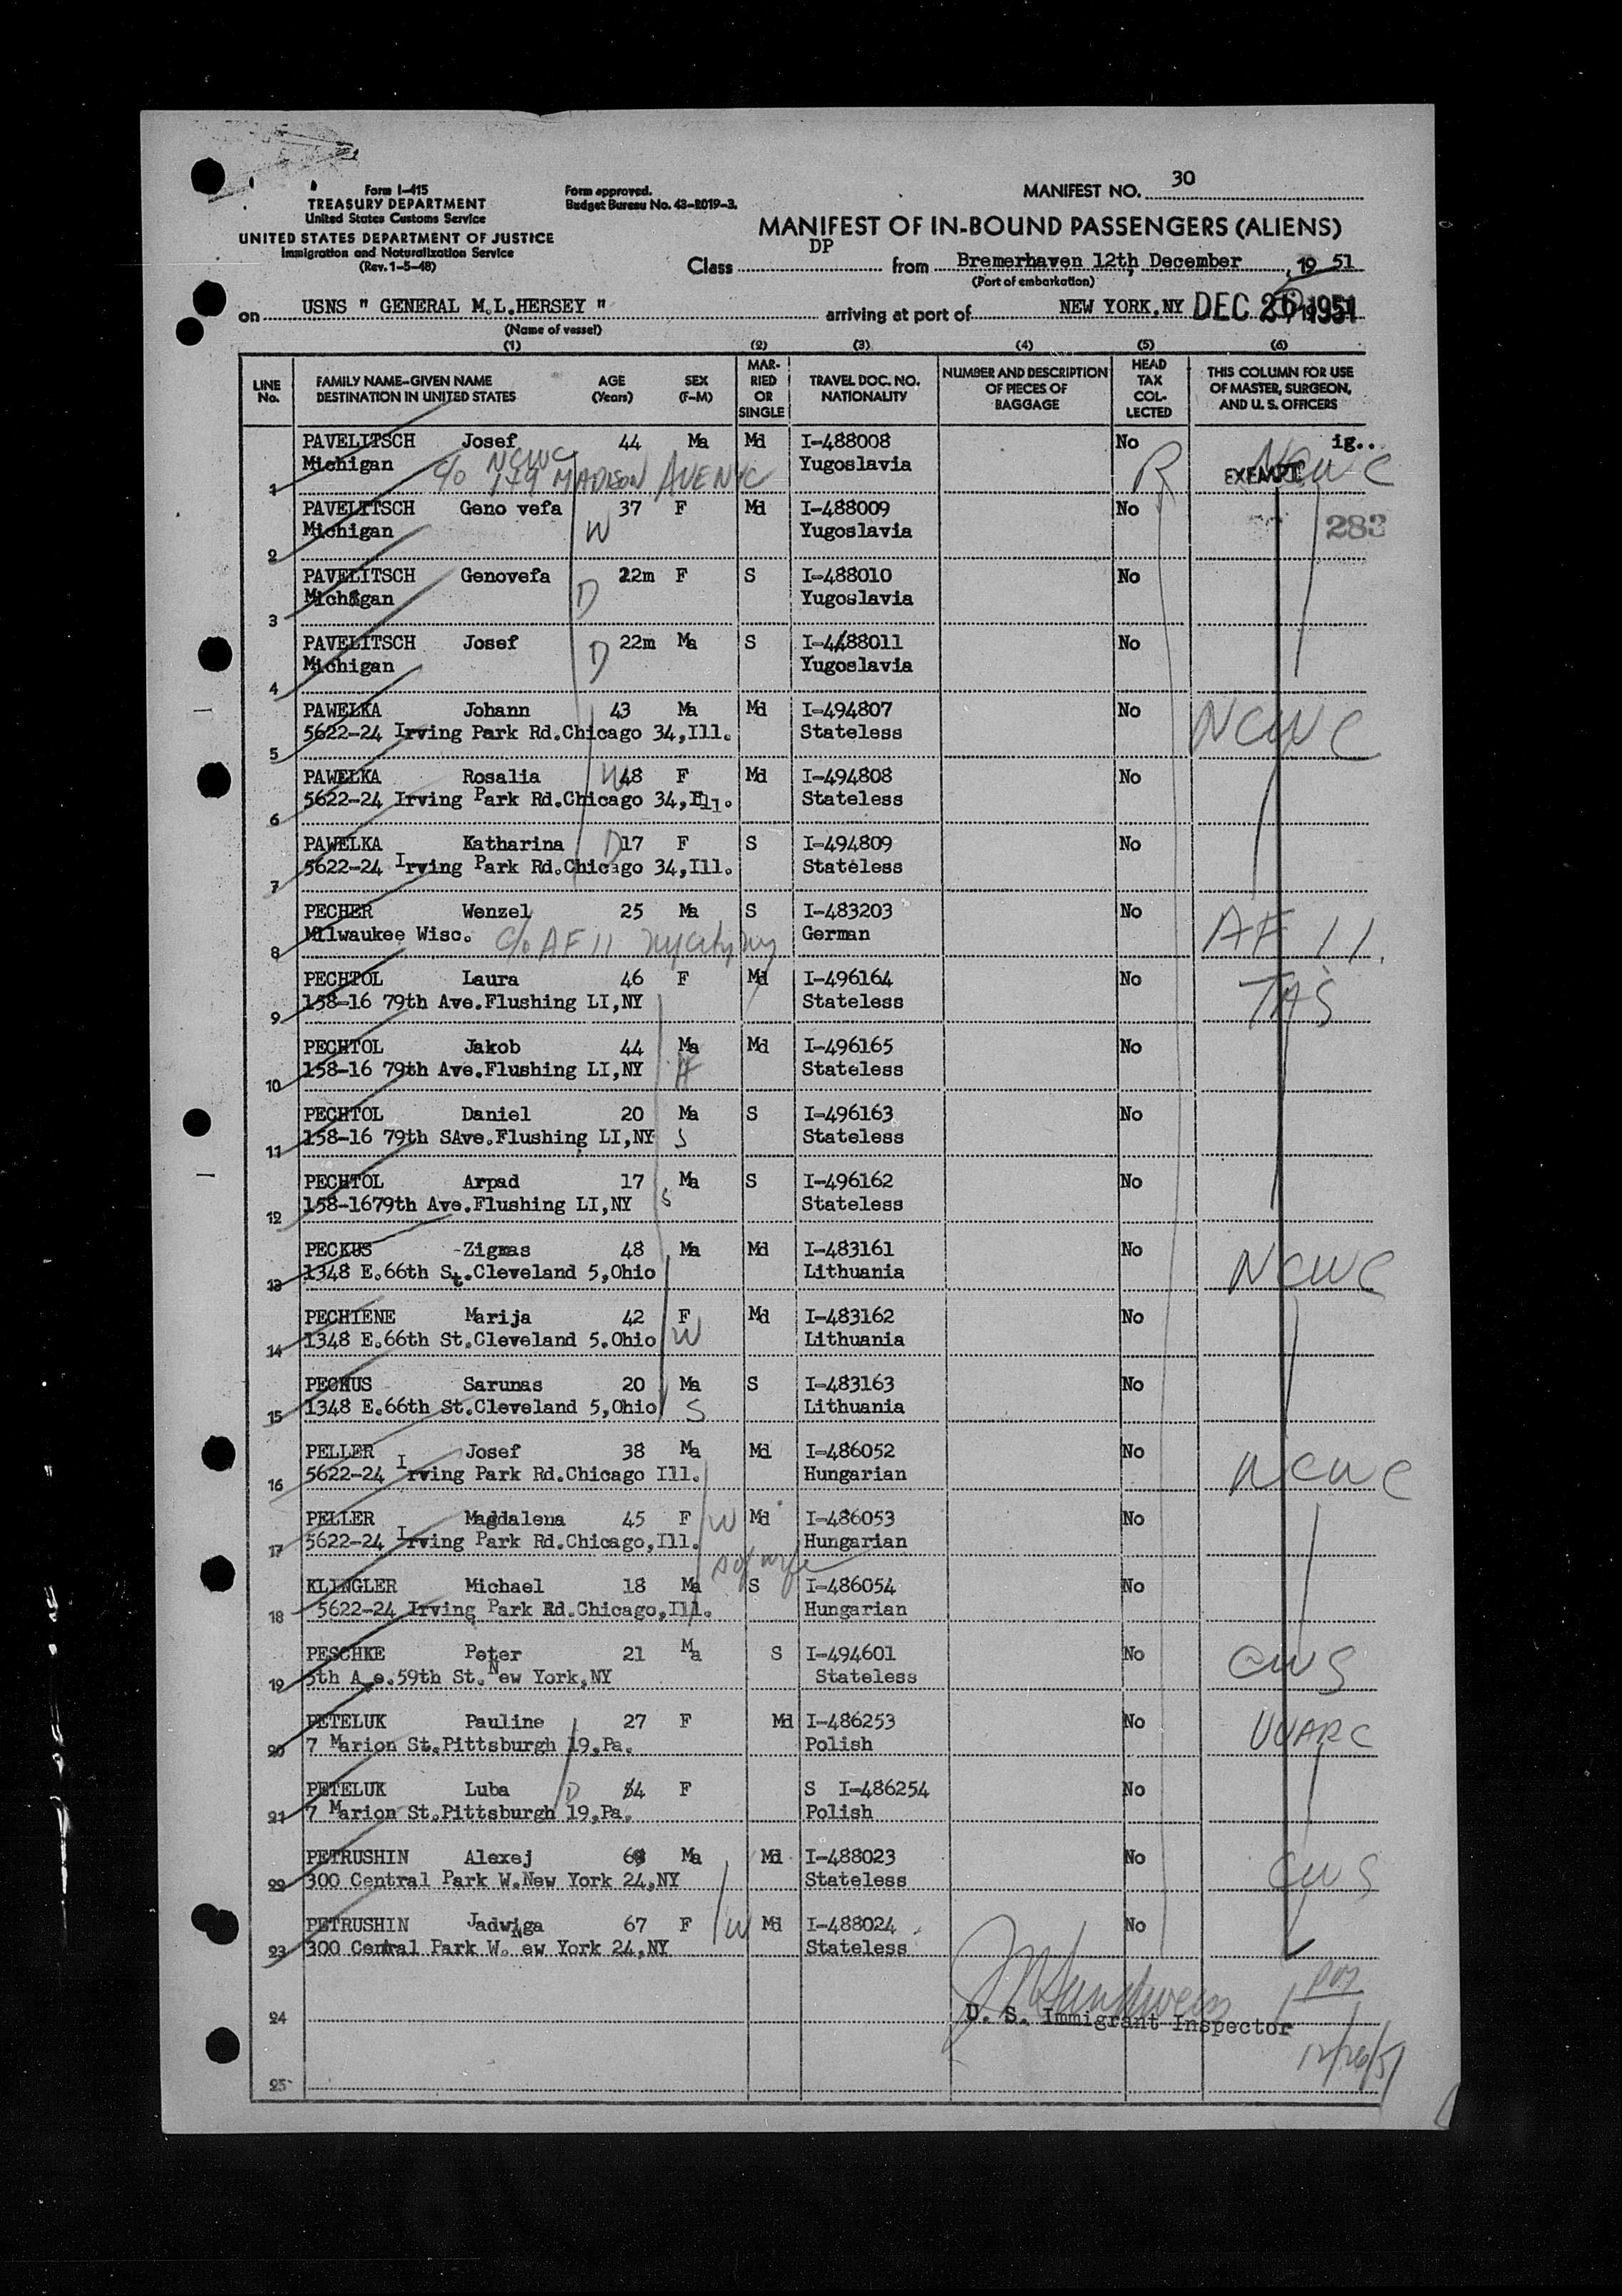 Form I-415
TREASURY DEPARTMENT
United States Customs Service
UNITED STATES DEPARTMENT OF JUSTICE
Immigration and Naturalization Service
(Rev. 1-5-48)
Form approved.
Budget Bureau No. 43-R019-3.
MANIFEST NO. 30
MANIFEST OF IN-BOUND PASSENGERS (ALIENS)
Class DP from Bremerhaven 12th, December, 1951
(Port of embarkation)
on USNS " GENERAL M.L.HERSEY " arriving at port of NEW YORK,NY DEC 26 1951
(Name of vessel)
(1) (2) (3) (4) (5) (6)
LINE No. FAMILY NAME-GIVEN NAME DESTINATION IN UNITED STATES AGE (Years) SEX (F-M) MARRIED OR SINGLE TRAVEL DOC. NO. NATIONALITY NUMBER AND DESCRIPTION OF PIECES OF BAGGAGE HEAD TAX COLLECTED THIS COLUMN FOR USE OF MASTER, SURGEON, AND U. S. OFFICERS
PAVELITSCH Josef 44 Ma Md I-488008 No ig..
Michigan c/o NCWC 149 MADISON AVE NYC Yugoslavia R EXEMPT NCWC
1
PAVELITSCH Geno vefa 37 F Md I-488009 No
Michigan W Yugoslavia 283
2
PAVELITSCH Genovefa 22m F S I-488010 No
Michigan D Yugoslavia
3
PAVELITSCH Josef 22m Ma S I-4488011 No
Michigan D Yugoslavia
4
PAWELKA Johann 43 Ma Md I-494807 No NCWC
5622-24 Irving Park Rd.Chicago 34,Ill. Stateless
5
PAWELKA Rosalia W 48 F Md I-494808 No
5622-24 Irving Park Rd.Chicago 34,Ill. Stateless
6
PAWELKA Katharina D 17 F S I-494809 No
5622-24 Irving Park Rd.Chicago 34,Ill. Stateless
7
PECHER Wenzel 25 Ma S I-483203 No AF II.
Milwaukee Wisc. c/o AF II ny city ny German
8
PECHTOL Laura 46 F Md I-496164 No TAS
158-16 79th Ave.Flushing LI,NY Stateless
9
PECHTOL Jakob 44 Ma Md I-496165 No
158-16 79th Ave.Flushing LI,NY H Stateless
10
PECHTOL Daniel 20 Ma S I-496163 No
158-16 79th SAve.Flushing LI,NY S Stateless
11
PECHTOL Arpad 17 Ma S I-496162 No
158-1679th Ave.Flushing LI,NY S Stateless
12
PECKUS -Zigmas 48 Ma Md I-483161 No NCWC
1348 E.66th St.Cleveland 5,Ohio Lithuania
13
PECHIENE Marija 42 F Md I-483162 No
1348 E.66th St.Cleveland 5.Ohio W Lithuania
14
PECKUS Sarunas 20 Ma S I-483163 No
1348 E.66th St.Cleveland 5,Ohio S Lithuania
15
PELLER Josef 38 Ma Md I-486052 No NCWC
5622-24 Irving Park Rd.Chicago Ill. Hungarian
16
PELLER Magdalena 45 F W Md I-486053 No
5622-24 Irving Park Rd.Chicago,Ill. Hungarian
17 S of wife
KLINGLER Michael 18 Ma S I-486054 No
5622-24 Irving Park Rd.Chicago,Ill. Hungarian
18
PESCHKE Peter 21 Ma S I-494601 No CWS
5th Ave.59th St.New York,NY Stateless
19
PETELUK Pauline 27 F Md I-486253 No UUARC
7 Marion St.Pittsburgh 19,Pa. Polish
20
PETELUK Luba D 4 F S I-486254 No
7 Marion St.Pittsburgh 19,Pa. Polish
21
PETRUSHIN Alexej Ma Md I-488023 No CWS
300 Central Park W.New York 24,NY Stateless
22
PETRUSHIN Jadwiga 67 F W Md I-488024 No
300 Central Park W.New York 24,NY Stateless
23
24 U. S. Immigrant Inspector
12/26/51
25